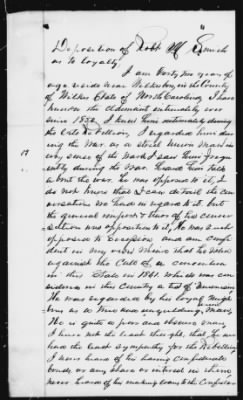 Deposition of Robt M
as to loyalty
I am forty two years of
age reside near Wilkesboro, in the County
of Wilkes State of North Carolina, I have
known the claimant intimately ever
since 1852, I knew him intimately during
the late Rebellion, I regarded him dur
ing the War, as a strict Union man in
every sense of the word, I saw him frequ
ently during the War, heard him talk
about the war, he was opposed to it, I
do not know that I can detail the con
versations we had in regard to it, but
the general import &amp; tenor of his conver
sation was opposition to it, He was much
opposed to Secession and am confi
dent in my own mind that he voted
against the Call of a convention
in this State in 1861. which was con
sidered in this County a test of Unionism
He was regarded by his loyal neigh
bors as a true and unyielding Union man,
He is quite a poor and obscure man,
I have not the least thought, that he ever
had the least sympathy for the Rebellion,
I never heard of his having confederate
bonds, or any share or interest in them
never heard of his making to the Confederate
17